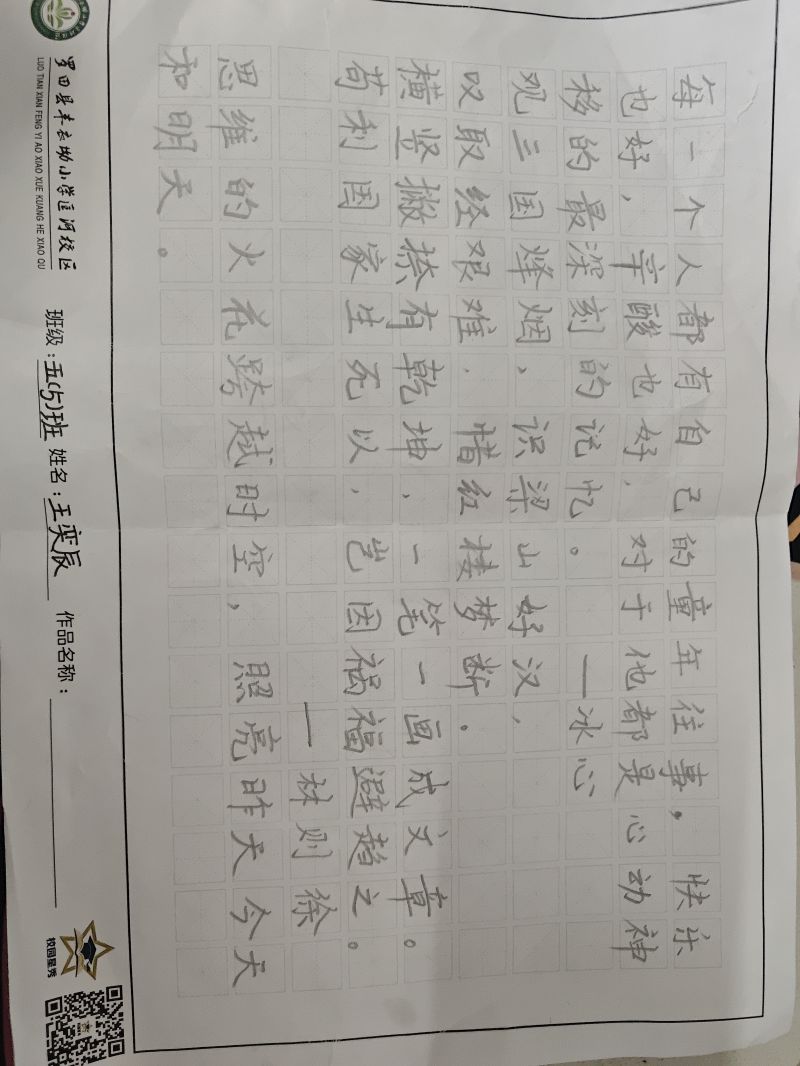 每一个人都有自己的童年往事，快乐
也好，辛酸也好，对于他都是心动神
移的最深刻的记忆。——冰心
观三国烽烟，识梁山好汉，
叹取经艰难，惜红楼梦断。
横竖撇捺有乾坤，一笔一画成文章。
苟利国家生死以，岂因祸福避趋之。
——林则徐
思维的火花跨越时空，照亮昨天今天
和明天。
罗田县丰衣坳小学匡河校区
LUO TIAN XIAN FENG YI AO XIAO XUE KUANG HE XIAO QU
班级：五(5)班 姓名：王奕辰 作品名称：
校园星秀